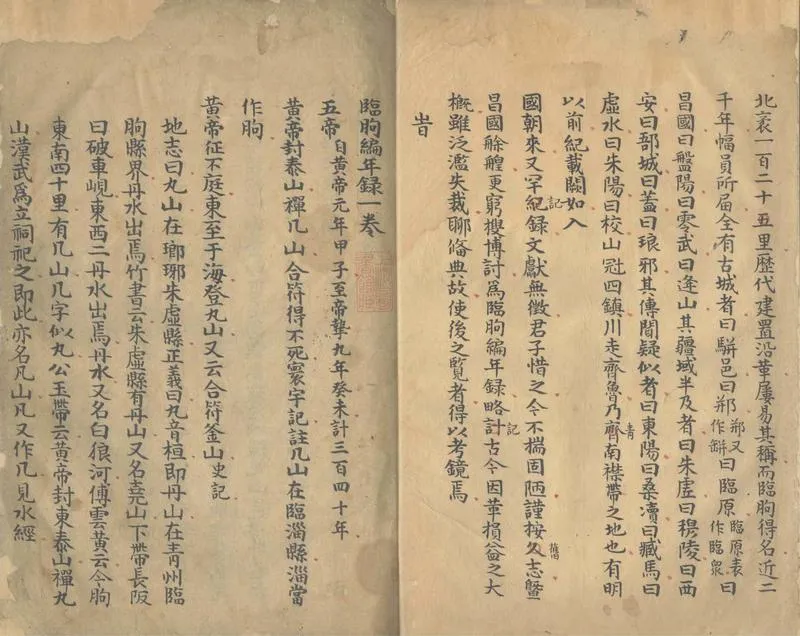 北袤一百二十五里歷代建置沿革屢易其稱而臨朐得名近二
千年幅員所屆全有古城者曰駢邑曰郱郱又作缾曰臨原臨原表作臨衆曰
昌國曰盤陽曰零武曰逄山其疆域半及者曰朱虛曰穆陵曰西
安曰郚城曰蓋曰琅邪其傳聞疑似者曰東陽曰桑瀆曰臧馬曰
虛水曰朱陽曰校山冠四鎮川走齊魯乃齊青南襟帶之地也有明
以前紀載闕如入
國朝來又罕紀記錄文獻無徵君子惜之今不揣固陋謹按久舊志暨
昌國艅艎更窮搜博討爲臨朐編年錄略計記古今因革損益之大
概雖泛濫失裁聊俻典故使後之覽者得以考鏡焉
旹
臨朐編年錄一卷
五帝自黃帝元年甲子至帝摯九年癸未計三百四十年
黃帝封泰山禪几山合符得不死寰宇記註几山在臨淄縣淄當
作朐
黃帝征不庭東至于海登丸山又云合符釜山史記
地志曰丸山在瑯琊朱虛縣正義曰丸音桓即丹山在青州臨
朐縣界丹水出焉竹書云朱虛縣有丹山又名堯山下帶長阪
曰破車峴東西二丹水出焉丹水又名白狼河傅雲黃云今朐
東南四十里有几山几字似丸公玉帶云黃帝封東泰山禪丸
山漢武爲立祠祀之即此亦名凡山凡又作几見水經